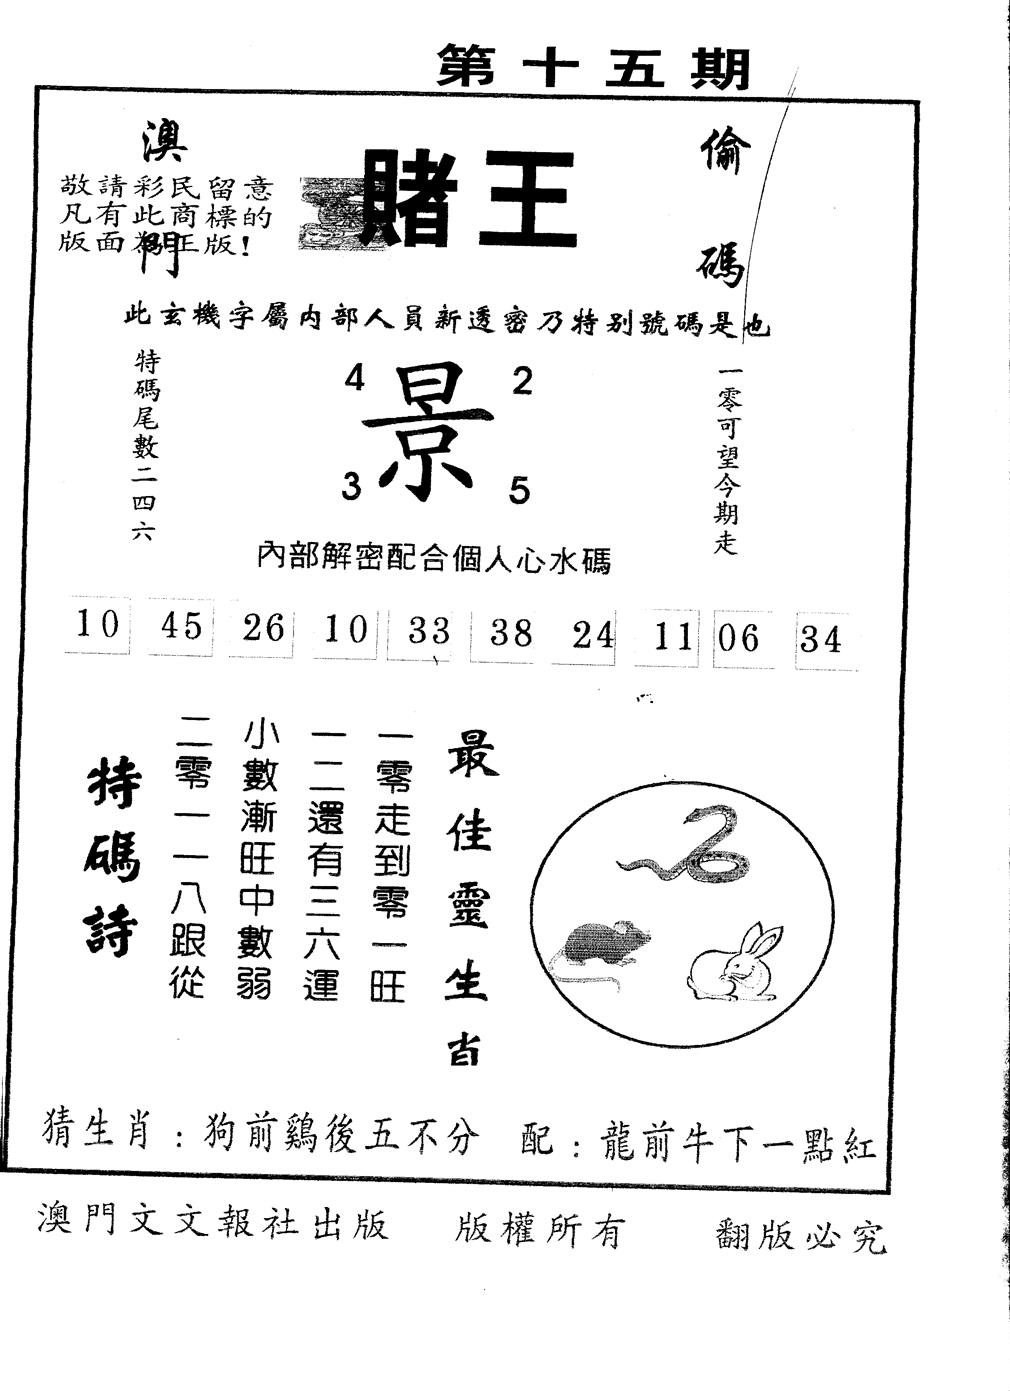 第十五期
澳門
賭王
偷碼
敬請彩民留意
凡有此商標的
版面為正版！
此玄機字屬內部人員新透密乃特别號碼是也
特碼尾數二四六
4
2
景
3
5
一零可望今期走
內部解密配合個人心水碼
10 45 26 10 33 38 24 11 06 34
最佳靈生肖
一零走到零一旺
一二還有三六運
小數漸旺中數弱
二零一一八跟從
特碼詩
猜生肖：狗前鷄後五不分 配：龍前牛下一點紅
澳門文文報社出版 版權所有 翻版必究